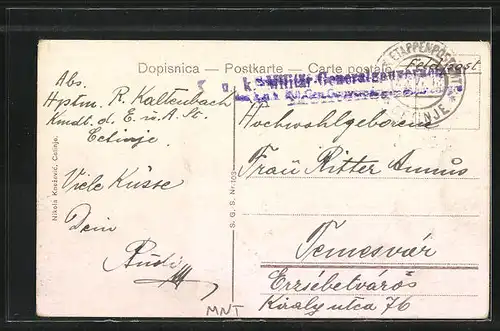 Dopisnica — Postkarte — Carte postale
Feldpost
ETAPPENPOSTAMT
CETINJE
K. u. k. Militär-Generalgouvernement
Abs.
Hptm. R. Kaltenbach
Kmdt. d. E. u. A. St.
Cetinje.
Viele Küsse
Dein
Rudi
Nikola Knežević, Cetinje.
S. G. S. Nr. 103
Hochwohlgeboren
Frau Ritter
Temesvár
Erzsébetváros
Király utca 76
MNT